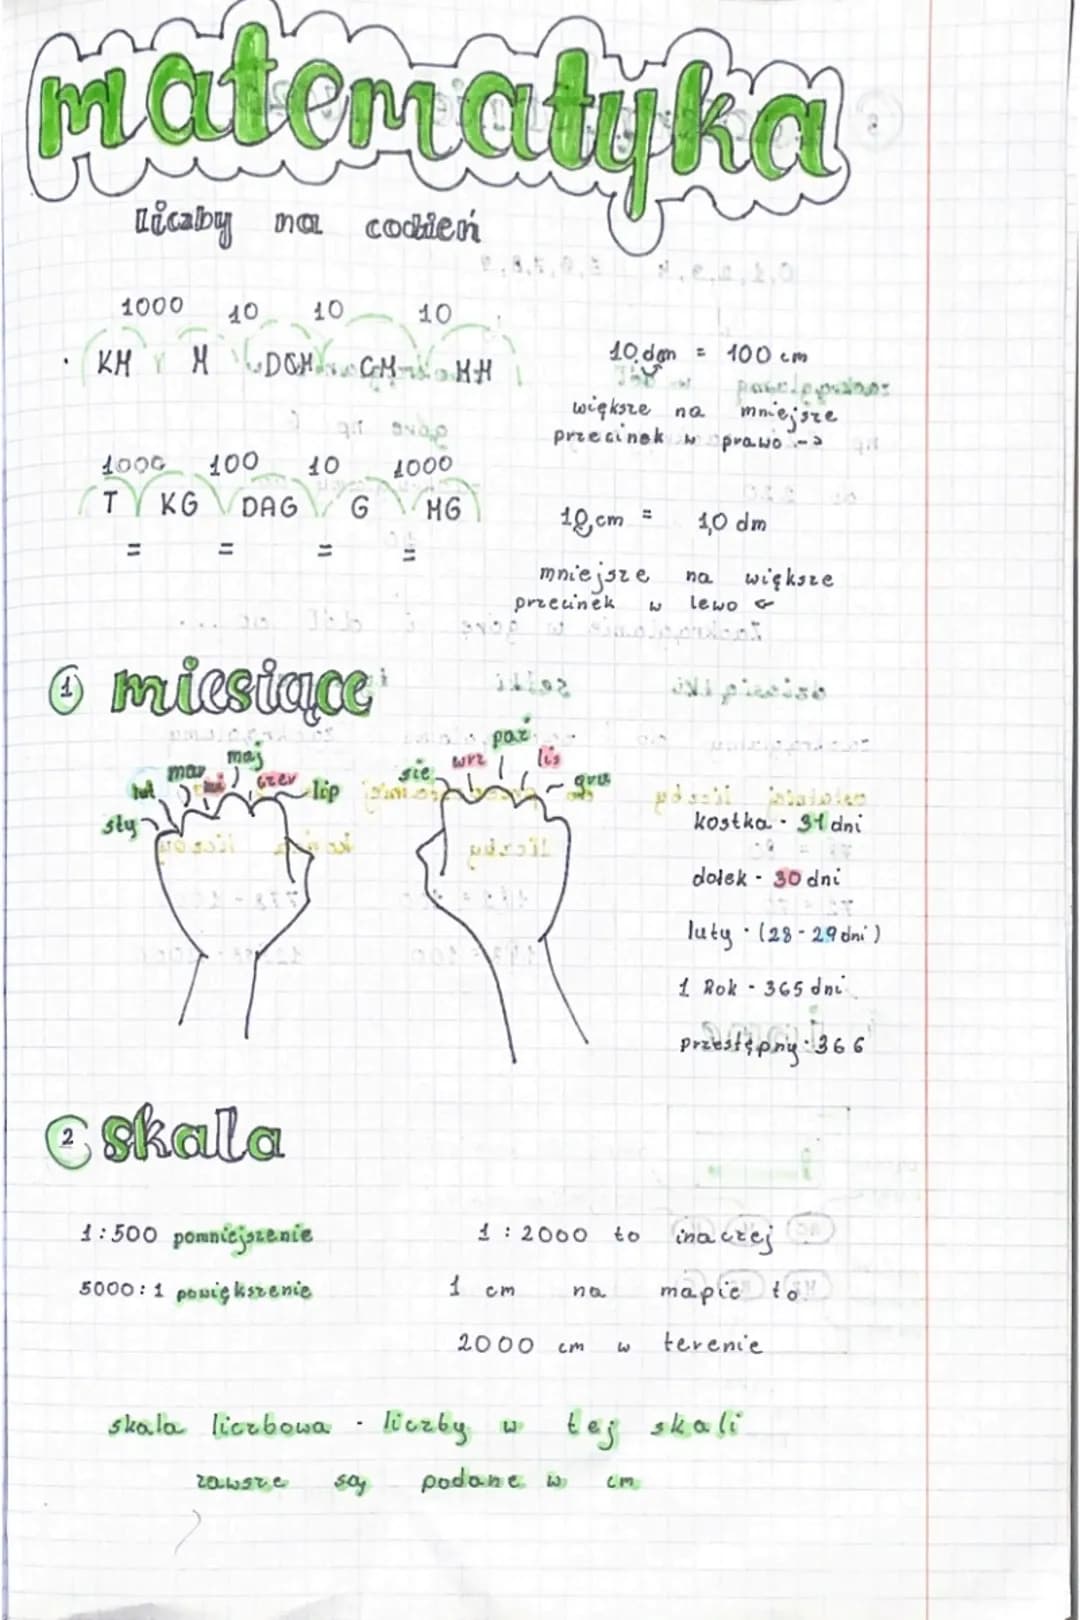 matematyka
liczby na codzień
1000 10 10 10
KM M DCM CM MM
10 dcm = 100 cm
większe na mniejsze
przecinek w prawo ->
1000 100 10 1000
T KG DAG G MG
= = = =
10 cm = 1,0 dm
mniejsze na większe
przecinek w lewo ←
1 miesiące
sty lut mar kwi maj czer lip
sie wrz paź lis gru
kostka - 31 dni
dołek - 30 dni
luty - (28-29 dni)
1 Rok - 365 dni
przestępny - 366
2 skala
1:500 pomniejszenie
5000:1 powiększenie
1 : 2000 to inaczej
1 cm na mapie to
2000 cm w terenie
skala liczbowa - liczby w tej skali
zawsze są podane w cm